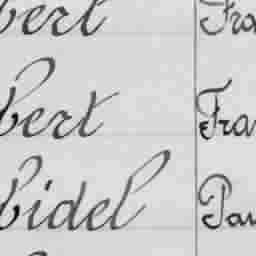 bert Fra
bert Fran
bidel Pau